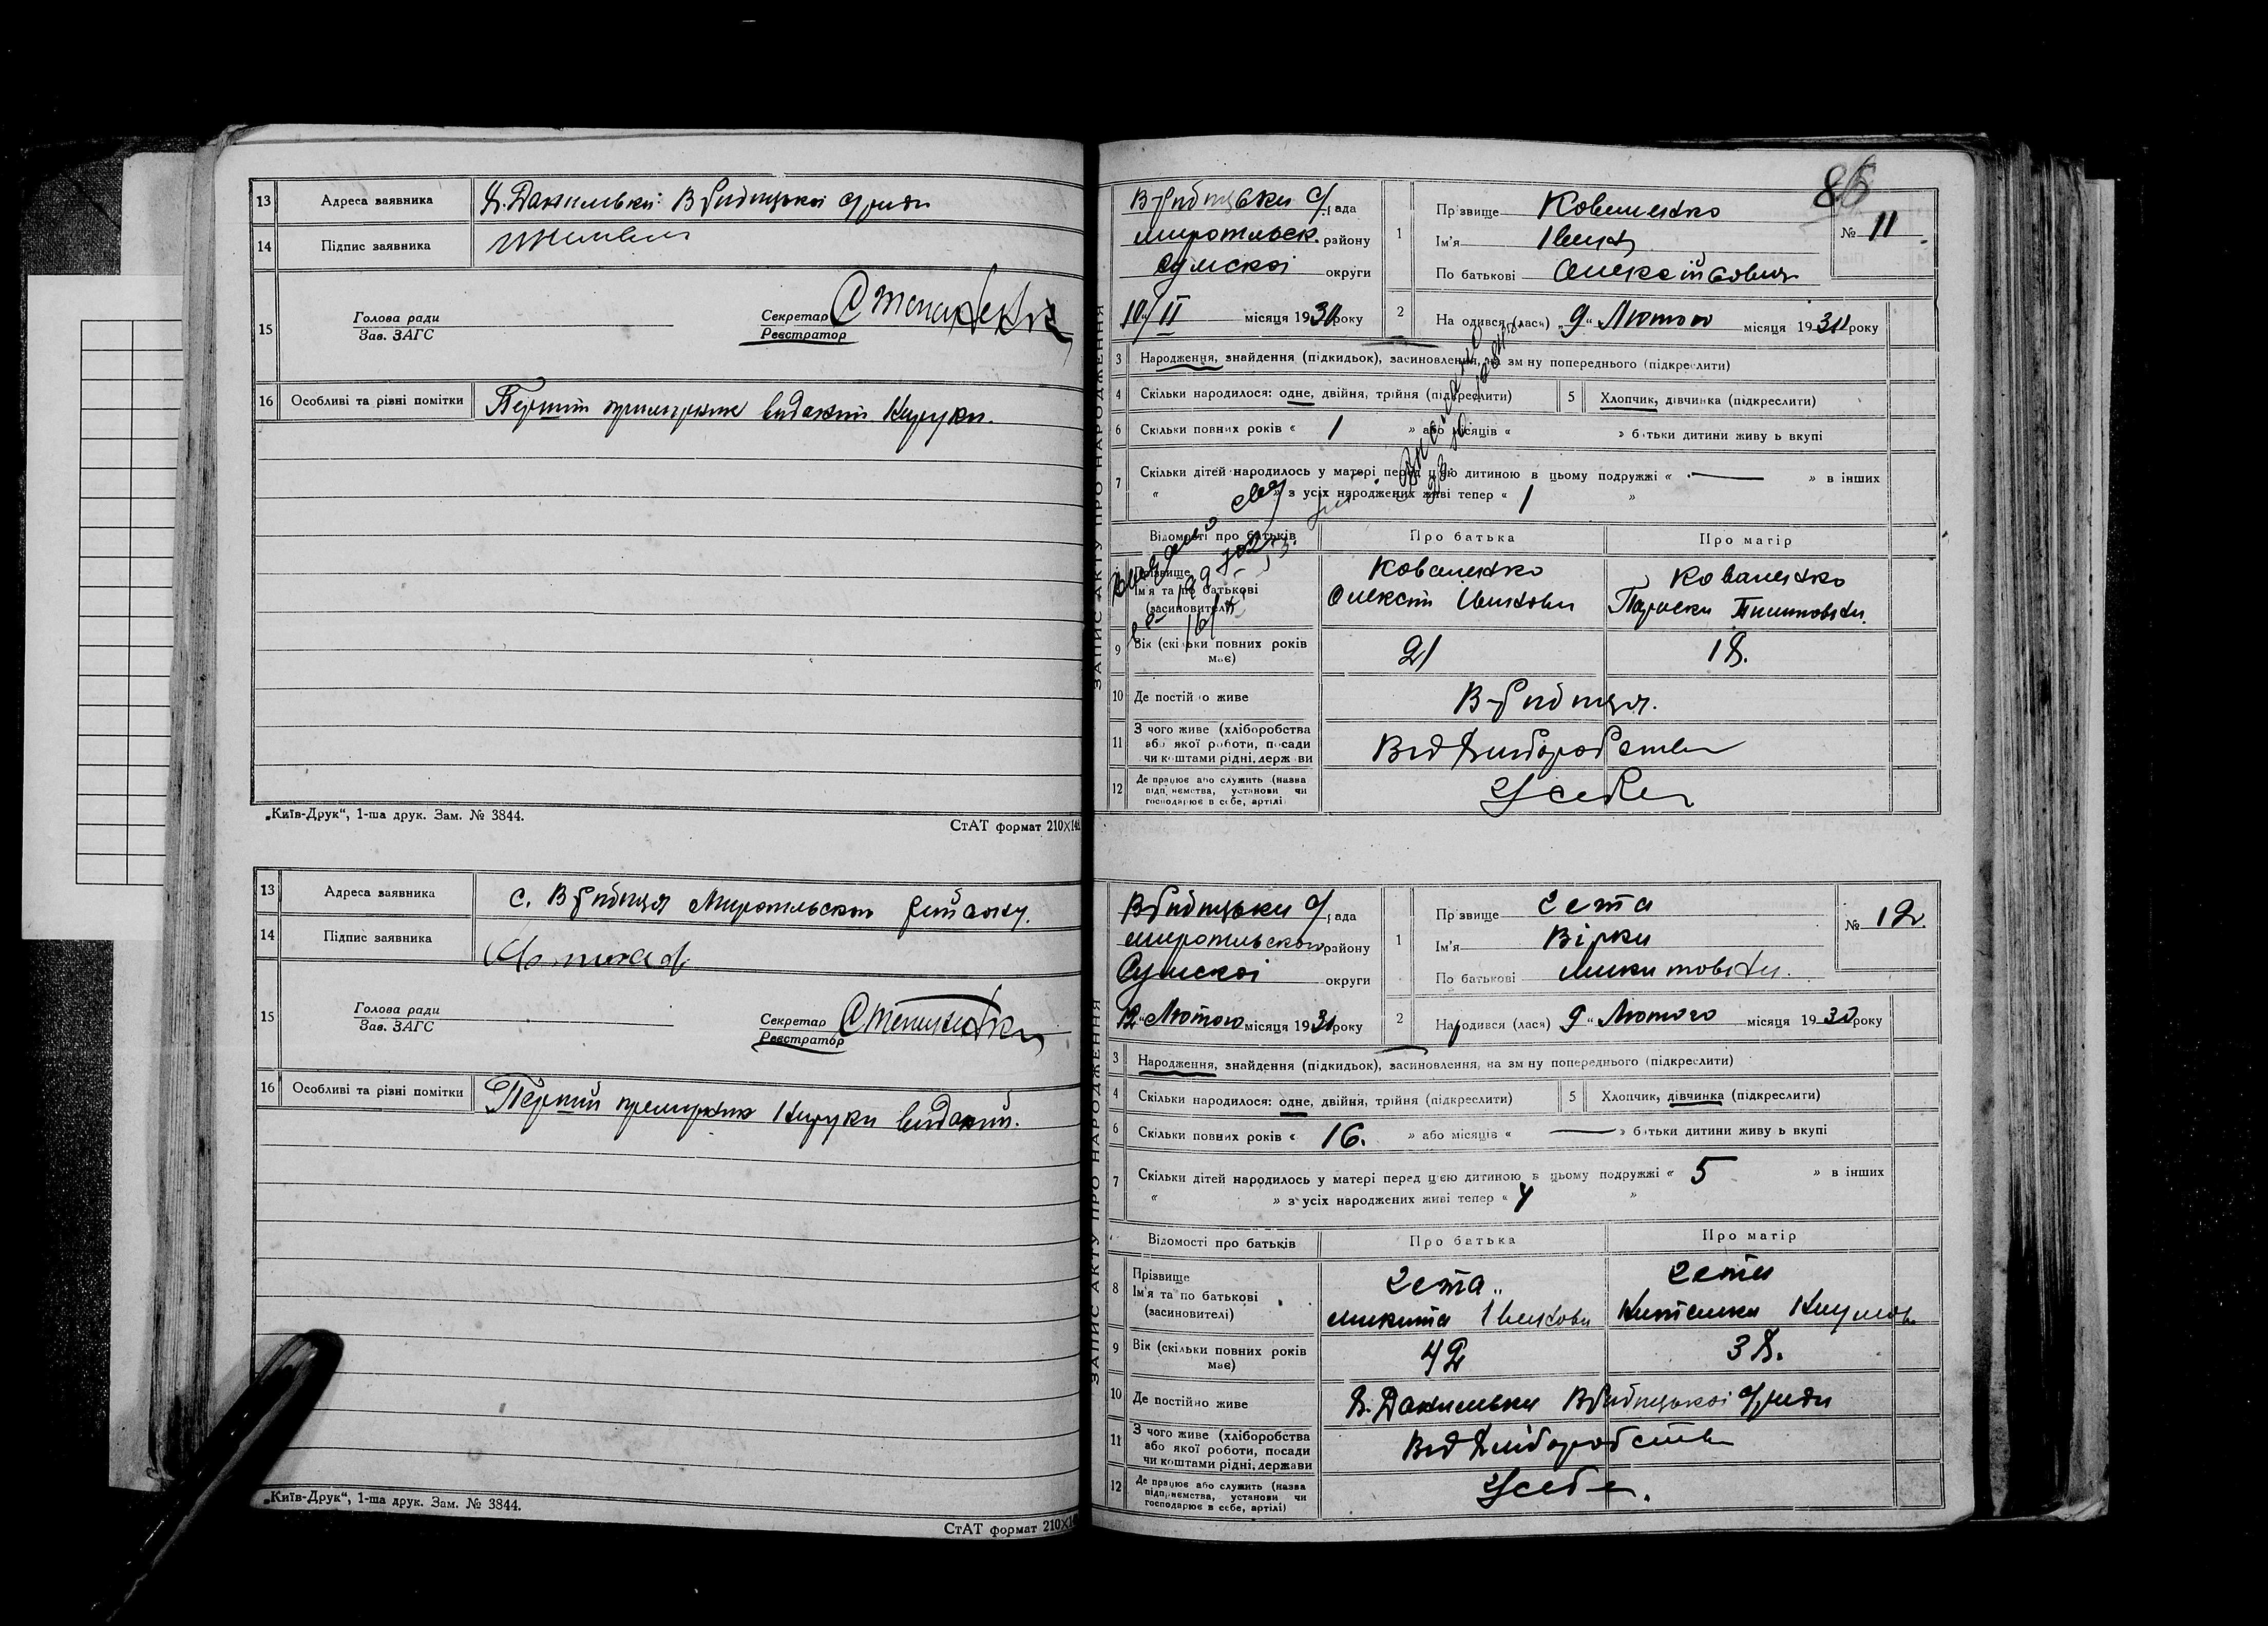 13 Адреса заявника Х. Данильвки В-Рибицької с/ради
14 Підпис заявника
15 Голова ради
Зав. ЗАГС
Секретар
Реєстратор
16 Особливі та різні помітки Перший примірник виданий на руки.
„Київ-Друк“, 1-ша друк. Зам. № 3844.
СтАТ формат 210×14
13 Адреса заявника с. В Рибиця Миропільского району.
14 Підпис заявника
15 Голова ради
Зав. ЗАГС
Секретар
Реєстратор
16 Особливі та різні помітки Перший примірник на руки виданий.
„Київ-Друк“, 1-ша друк. Зам. № 3844.
СтАТ формат 210×14
ЗАПИС АКТУ ПРО НАРОДЖЕННЯ
85
№ 11
В-Рибицьки с/рада
миропільск. району
Сумскої округи
10/II місяця 1930 року
1 Прізвище Коваленко
Ім'я Іван
По батькові Олексійович
2 Народився (лася) „9“ Лютого місяця 1930 року
3 Народження, знайдення (підкидьок), засиновлення, на зміну попереднього (підкреслити)
4 Скільки народилося: одне, двійня, трійня (підкреслити)
5 Хлопчик, дівчинка (підкреслити)
6 Скільки повних років « 1 » або місяців « » батьки дитини живуть вкупі
7 Скільки дітей народилось у матері перед цією дитиною в цьому подружжі « — » в інших
« » з усіх народжених живі тепер « 1 »
Відомості про батьків Про батька Про матір
Прізвище Коваленко Коваленко
Ім'я та по батькові Олексій Іванович Параска
(засиновителі)
9 Вік (скільки повних років має) 21 18.
10 Де постійно живе В-Рибиця.
11 З чого живе (хліборобства або якої роботи, посади чи коштами рідні, держави Від хліборобства
12 Де працює або служить (назва підприємства, установи чи господарює в себе, артілі) У себе
ЗАПИС АКТУ ПРО НАРОДЖЕННЯ
№ 12.
В Рибицьки с/рада
миропільского району
Сумскої округи
12 „Лютого місяця 1930 року
1 Прізвище
Ім'я Вірка
По батькові Микитовна.
2 Народився (лася) 9“ Лютого місяця 1930 року
3 Народження, знайдення (підкидьок), засиновлення, на зміну попереднього (підкреслити)
4 Скільки народилося: одне, двійня, трійня (підкреслити)
5 Хлопчик, дівчинка (підкреслити)
6 Скільки повних років « 16. » або місяців « — » батьки дитини живуть вкупі
7 Скільки дітей народилось у матері перед цією дитиною в цьому подружжі « 5 » в інших
« » з усіх народжених живі тепер « 4 »
Відомості про батьків Про батька Про матір
8 Прізвище
Ім'я та по батькові микита Іванович
(засиновителі)
9 Вік (скільки повних років має) 42 38.
10 Де постійно живе Х. Данильвка В Рибицької с/ради
11 З чого живе (хліборобства або якої роботи, посади чи коштами рідні, держави Від хліборобства
12 Де працює або служить (назва підприємства, установи чи господарює в себе, артілі) У себе.